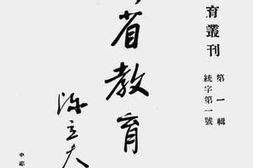 育叢刊
第一輯
統字第一號
省教育
陳立夫